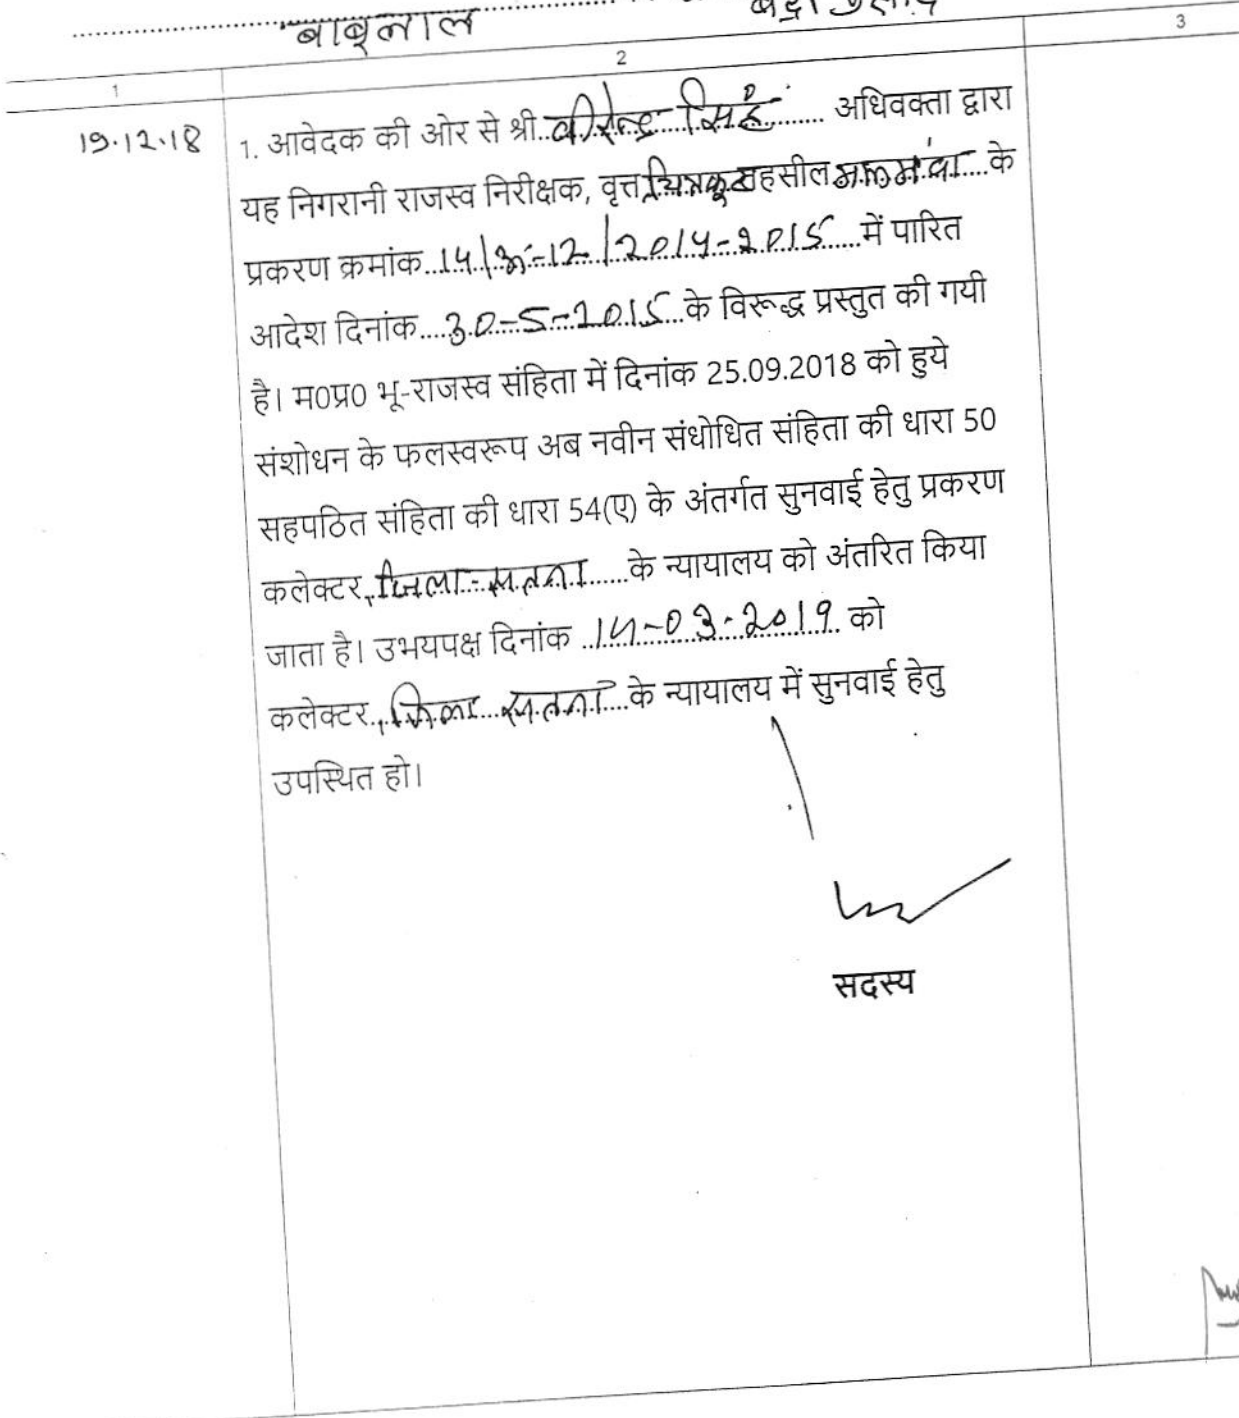 बाबूलाल
1 2 3
19.12.18 1. आवेदक की ओर से श्री..वीरेन्द्र सिंह...... अधिवक्ता द्वारा
यह निगरानी राजस्व निरीक्षक, वृत्त चित्रकूट तहसील मझगंवा....के
प्रकरण क्रमांक..14/अ-12/2014-2015.....में पारित
आदेश दिनांक....30-5-2015...के विरूद्ध प्रस्तुत की गयी
है। म0प्र0 भू-राजस्व संहिता में दिनांक 25.09.2018 को हुये
संशोधन के फलस्वरूप अब नवीन संधोधित संहिता की धारा 50
सहपठित संहिता की धारा 54(ए) के अंतर्गत सुनवाई हेतु प्रकरण
कलेक्टर, जिला-सतना......के न्यायालय को अंतरित किया
जाता है। उभयपक्ष दिनांक ..14-03-2019. को
कलेक्टर, जिला सतना...के न्यायालय में सुनवाई हेतु
उपस्थित हो।
सदस्य